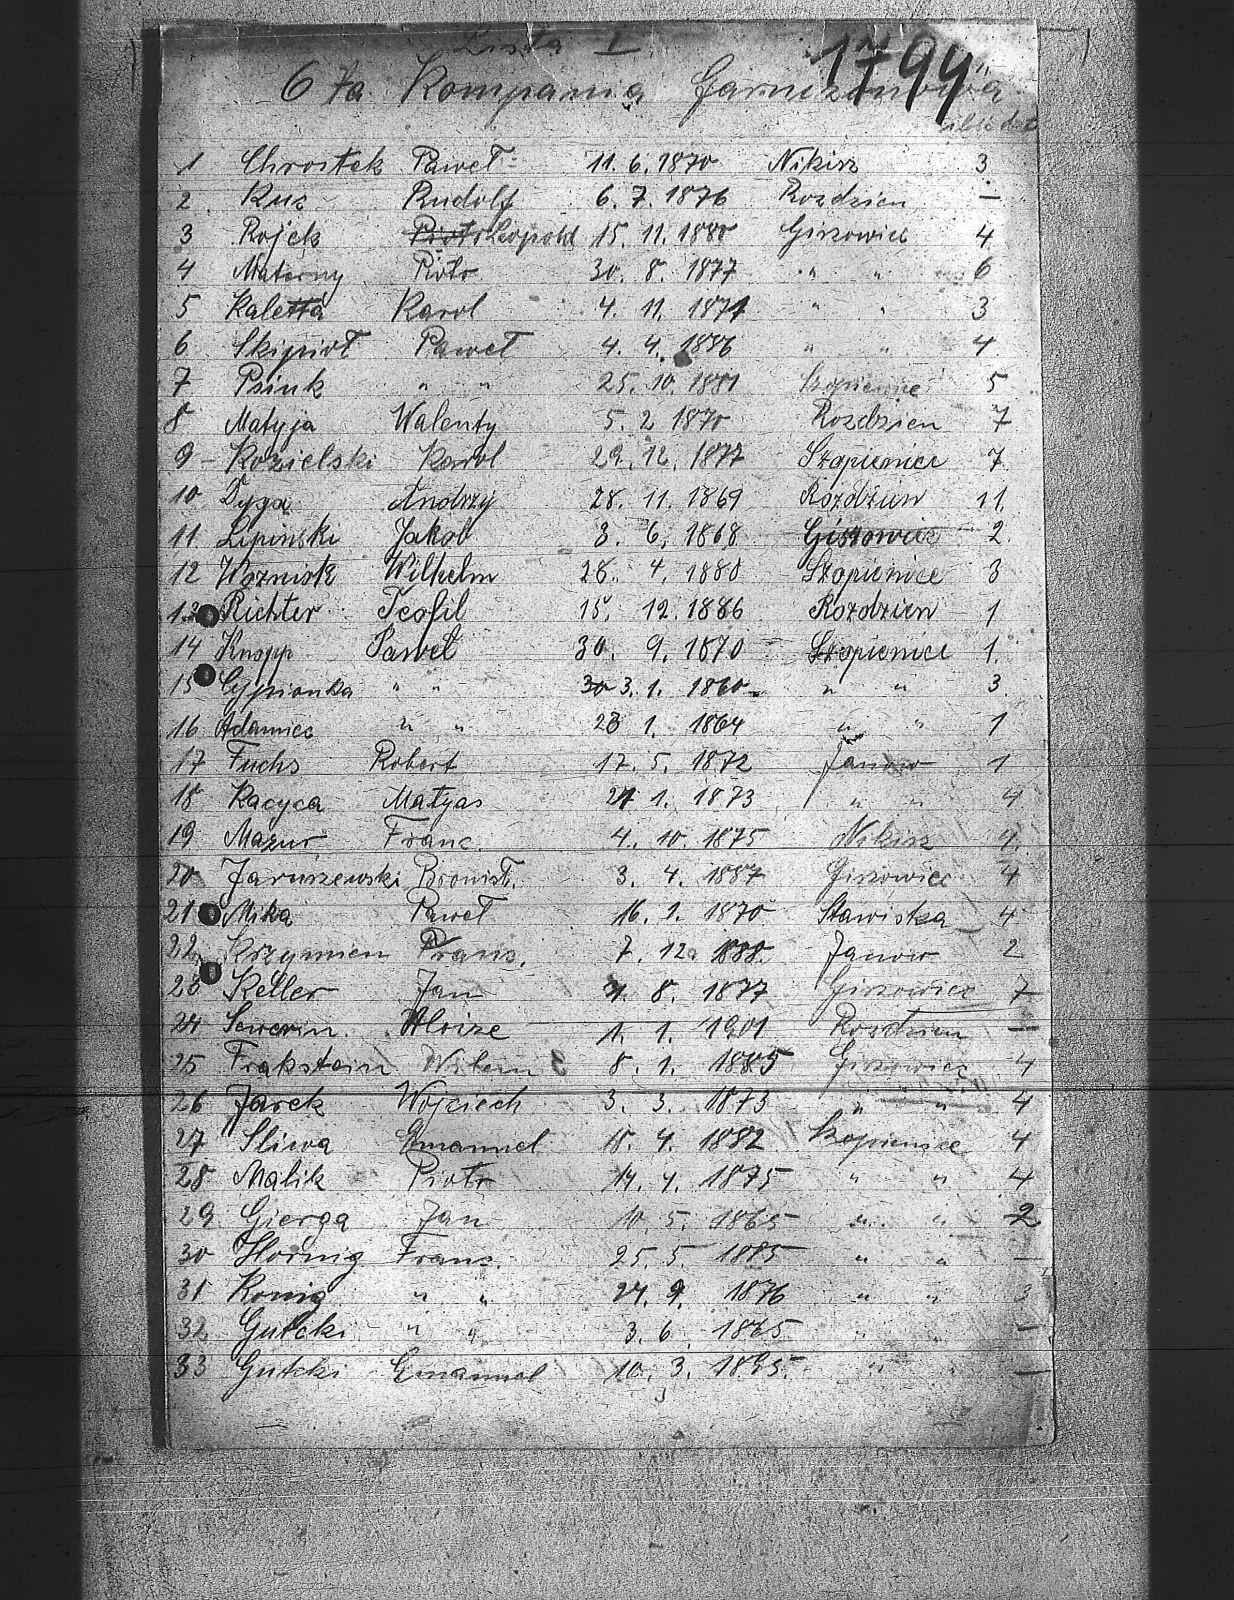 Lista I
1799
6ta Kompania Garnizonowa
1 Chrostek Paweł 11. 6. 1870 Nikisz 3
2. Kus Rudolf 6. 7. 1876 Rozdzien —
3 Rojek Piotr Leopold 15. 11. 1880 Giszowiec 4
4 Materny Piotr 30. 8. 1877 " " 6
5 Kaletta Karol 4. 11. 1871 " " 3
6 Skipioł Paweł 4. 4. 1886 " " 4
7 Psiuk " " 25. 10. 1881 Szopienice 5
8 Matyja Walenty 5. 2 1870 Rozdzien 7
9 – Kozielski Karol 29. 12. 1877 Szopienice 7
10 Dyga Andrzy 28. 11. 1869 Rozdzien 11.
11. Lipinski Jakob 3. 6. 1868 Giszowiec 2.
12 Wozniok Wilhelm 28. 4. 1880 Szopienice 3
13 Richter Teofil 15. 12. 1886 Rozdzien 1
14 Knopp Paweł 30. 9. 1870 Szopienice 1.
15 Cypionka " " 30 3. 1. 1860. " " 3.
16 Adamiec " " 28 1. 1864 " " 1
17 Fuchs Robert 17. 5. 1872 Janow 1
18 Kacyca Matyas 21 1. 1873 " " 4
19 Mazur Franc. 4. 10. 1875 Nikisz 9.
20 Jaruszewski Bronisł. 3. 4. 1887 Giszowiec 4
21 Mika Paweł 16. 1. 1870 Stawiska 4
22 Krzymien Franc. 7. 12. 1888. Janow 2
23 Keller Jan 4. 8. 1877 Giszowiec 7
24 Sewerin Aloize 1. 1. 1901 Rozdzien —
25 Frakstein Wilem 8. 1. 1885 Giszowiec 4
26 Jarek Wojciech 3. 3. 1873 " " 4
27 Sliwa Emanuel 15. 4. 1882 Szopienice 4
28 Malik Piotr 14. 4. 1875 " " 4
29 Gierga Jan 10. 5. 1865 " " 2
30 Hornig Franz. 25. 5. 1885 " " —
31 Konig " " 24. 9. 1876 " " 3
32 Gutcki " " 3. 6. 1865 " " —
33 Gutcki Emanuel 10. 3. 1895. " " —